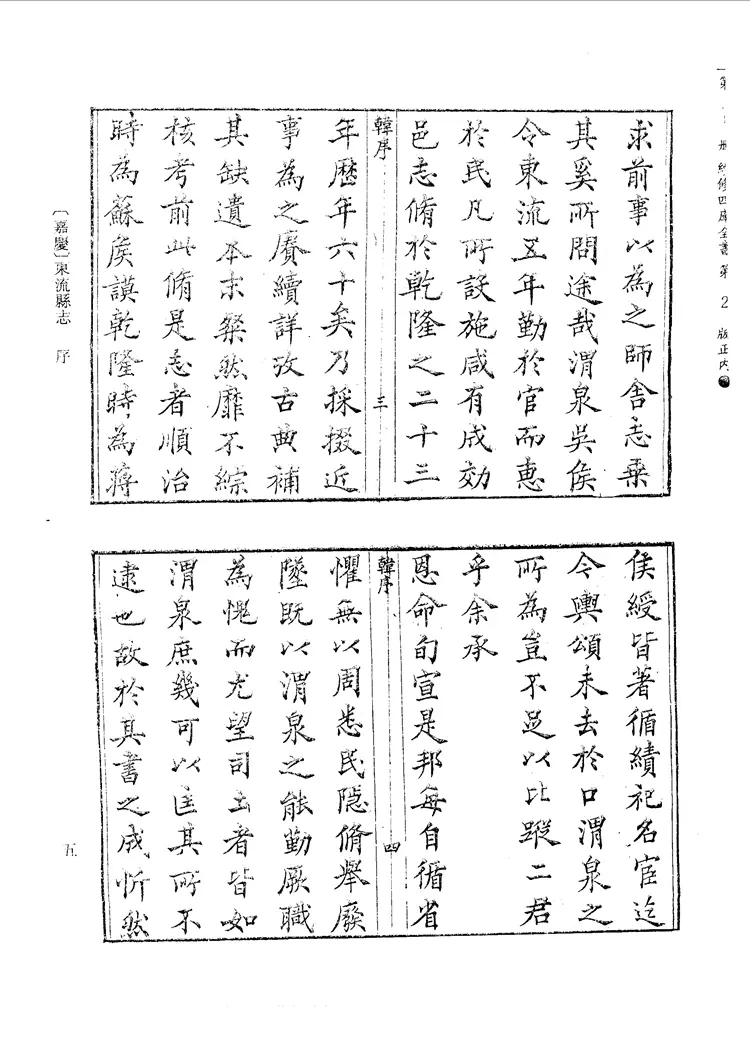 求前事以為之師舍志乗
其奚所問途哉渭泉吳侯
令東流五年勤於官而惠
於民凡所設施咸有成効
邑志脩於乾隆之二十三
韓序
三
年歷年六十矣乃採掇近
事為之賡續詳攷古典補
其缺遺本末粲然靡不綜
核考前此脩是志者順治
時為蘇侯謨乾隆時為蔣
侯綬皆著循績祀名宦迄
今輿頌未去於口渭泉之
所為豈不足以比蹤二君
乎余承
恩命旬宣是邦每自循省
韓序
四
懼無以周悉民隠脩舉廢
墜既以渭泉之能勤厥職
為愧而尤望司土者皆如
渭泉庶幾可以匡其所不
逮也故於其書之成忻然
〔嘉慶〕東流縣志 序
五
修四庫全書 第 2 版正内